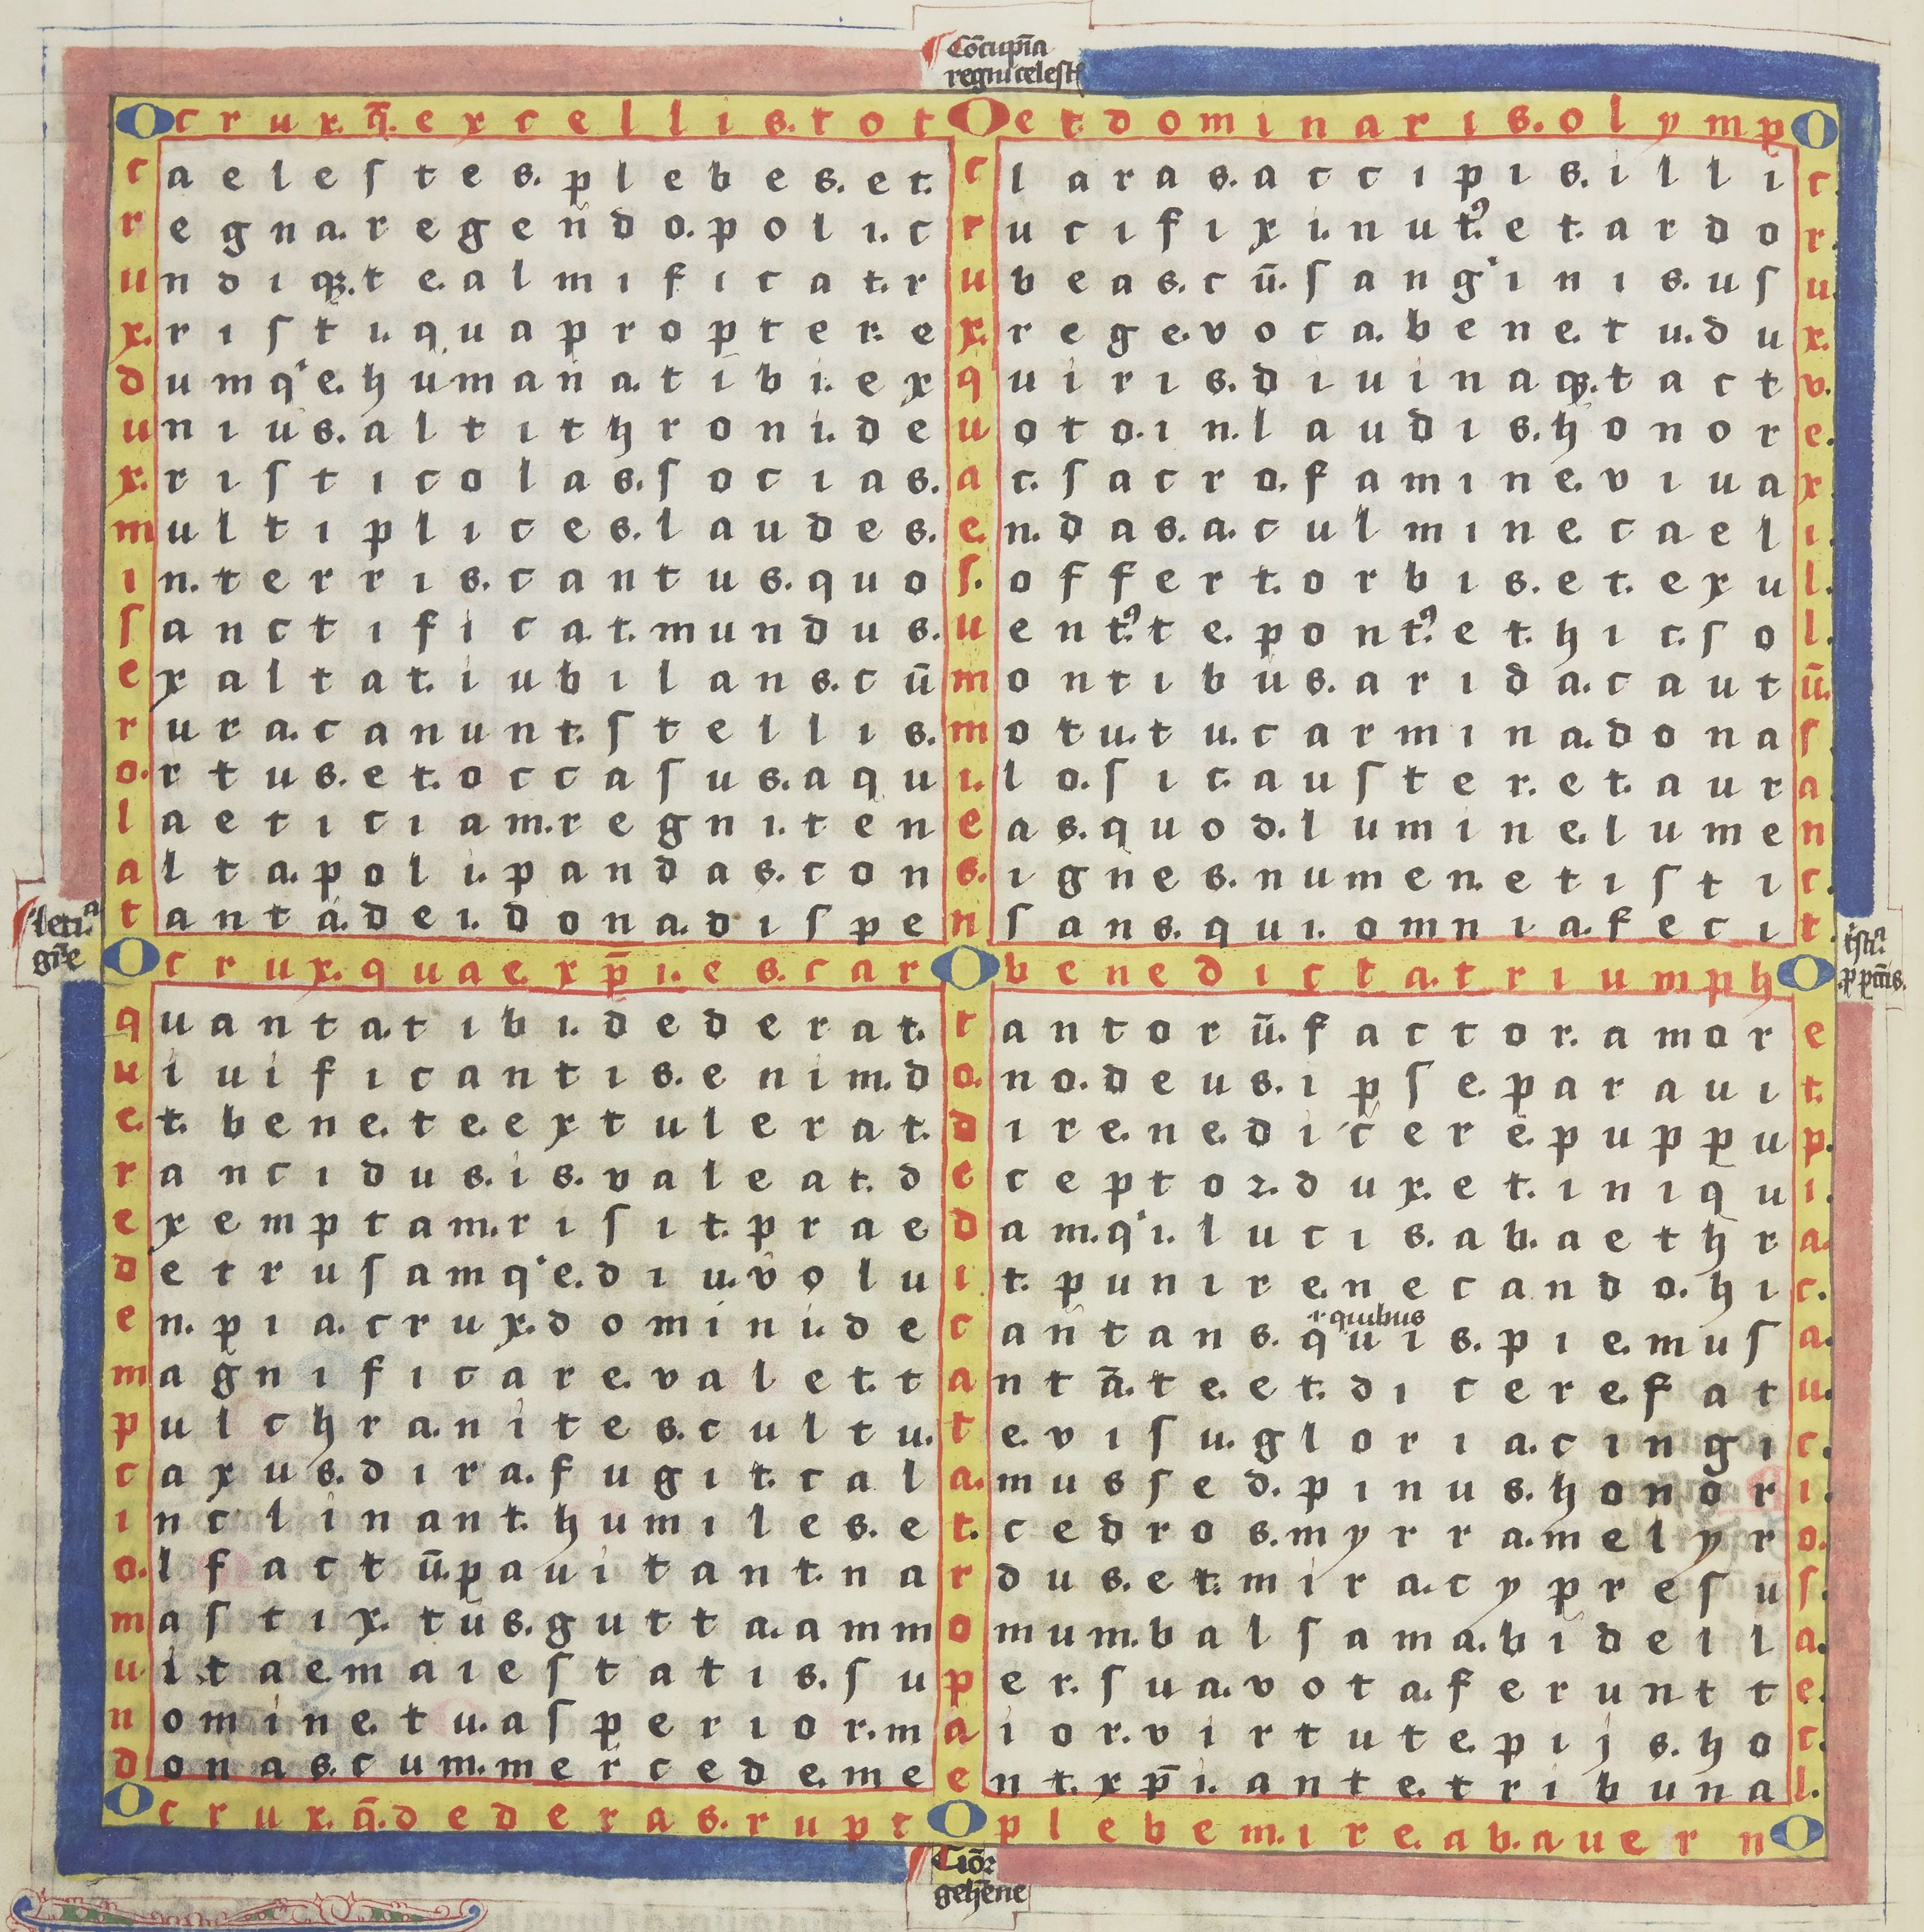 Cōcupīa
regni celesť
Ocrux.q̄.excellis.totOet.dominaris.olympO
caelestes.plebes.et.claras.accipis.illic.
regna.regendo.poli.crucifixi.nut᾽.et.ardor.
undiqȝ.te.almificat.rubeas.cū.sang'inis.usu.
x.risti.quapropter.ex.rege.voca.bene.tu.dux.
dumq'e.humana.tibi.exquiris.diuinaqȝ.tactv.
unius.altithroni.deuoto.in.laudis.honore.
x.risticolas.socias.ac.sacro.famine.viuax
multiplices.laudes.en.das.a.culmine.caeli.
in.terris.cantus.quos.offert.orbis.et.exul.
sanctificat.mundus.uent᾽.te.pont᾽.et.hic.sol.
exaltat.iubilans.cūmontibus.arida.cautū.
rura.canunt.stellis.motu.tu.carmina.donas
o.rtus.et.occasus.aqui.lo.sic.auster.et.aura
laeticiam.regni.teneas.quod.lumine.lumen
alta.poli.pandas.cons.ignes.numen.et isti c.
tanta.dei.dona.dispensans.qui.omnia.fecit.
leticᵃ
gr̄e
Ocrux.quae.xp̄i.es.carObenedicta.triumphO
quanta.tibi.dederat.tantorū.factor.amore
uiuificantis.enim.do.no.deus.ipse.parauit.
e.t.bene.te.extulerat.dire.ne.dicere.puppup.
rancidus.is.valeat.deceptoꝛ.dux.et.iniqui.
exemptam.risit.praedam.q'i.lucis.ab.aethra.
detrusamq'e.diu.voluit.punire.necando.hic.
en.pia.crux.domini.decantans.quis.pie.musa.
r quibus
magnificare.valet.tantā.te.et.dicere.fatu.
pulchra.nites.cultu.te.visu.gloria.cingic.
caxus.dira.fugit.cala.mussed.pinus.honori.
inclinant.humiles.et.cedros.myrra.melyro.
o.lfactū.pauitant.nardus.et.mira.cypresus.
mastix.tus.gutta.ammomum.balsama.bideila.
ultaemaiestatis.super.sua.vota.ferunt te.
nomine.tu.asperior.maior.virtute.pijs.hoc.
donas.cum.mercede.meent.xp̄i.ante.tribunal.
Ocrux.q̄.dederas.ruptOplebem.ire.ab.auernO